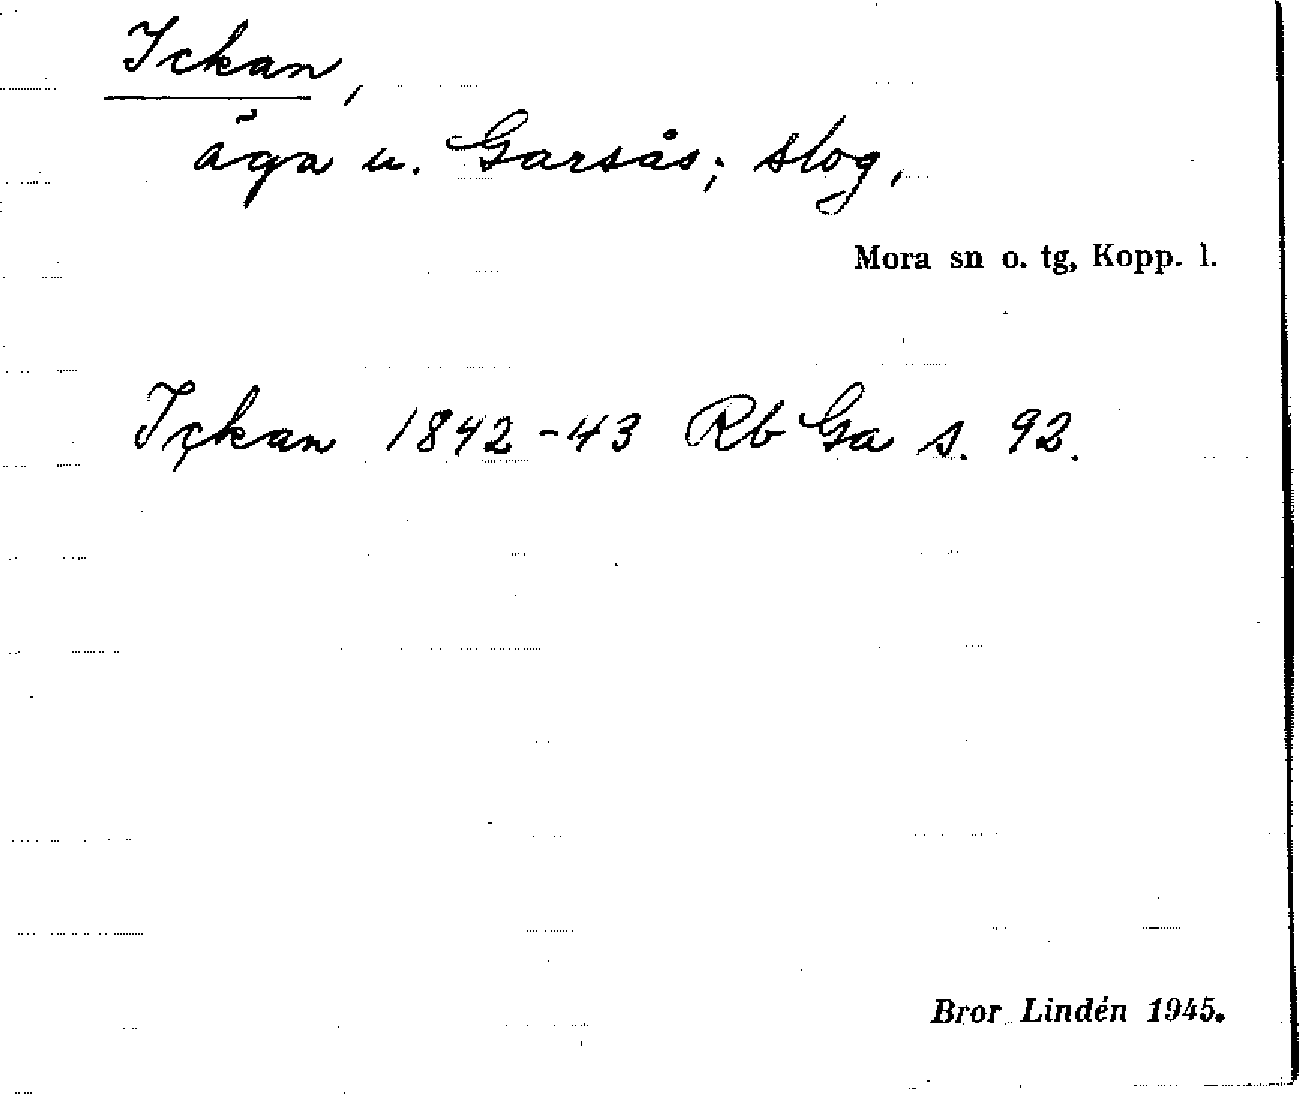 Ickan,
äga u. Garsås; slog,
Mora sn o. tg, Kopp. l.
Içkan 1842-43 Rb Ga s. 92.
Bror Lindén 1945.